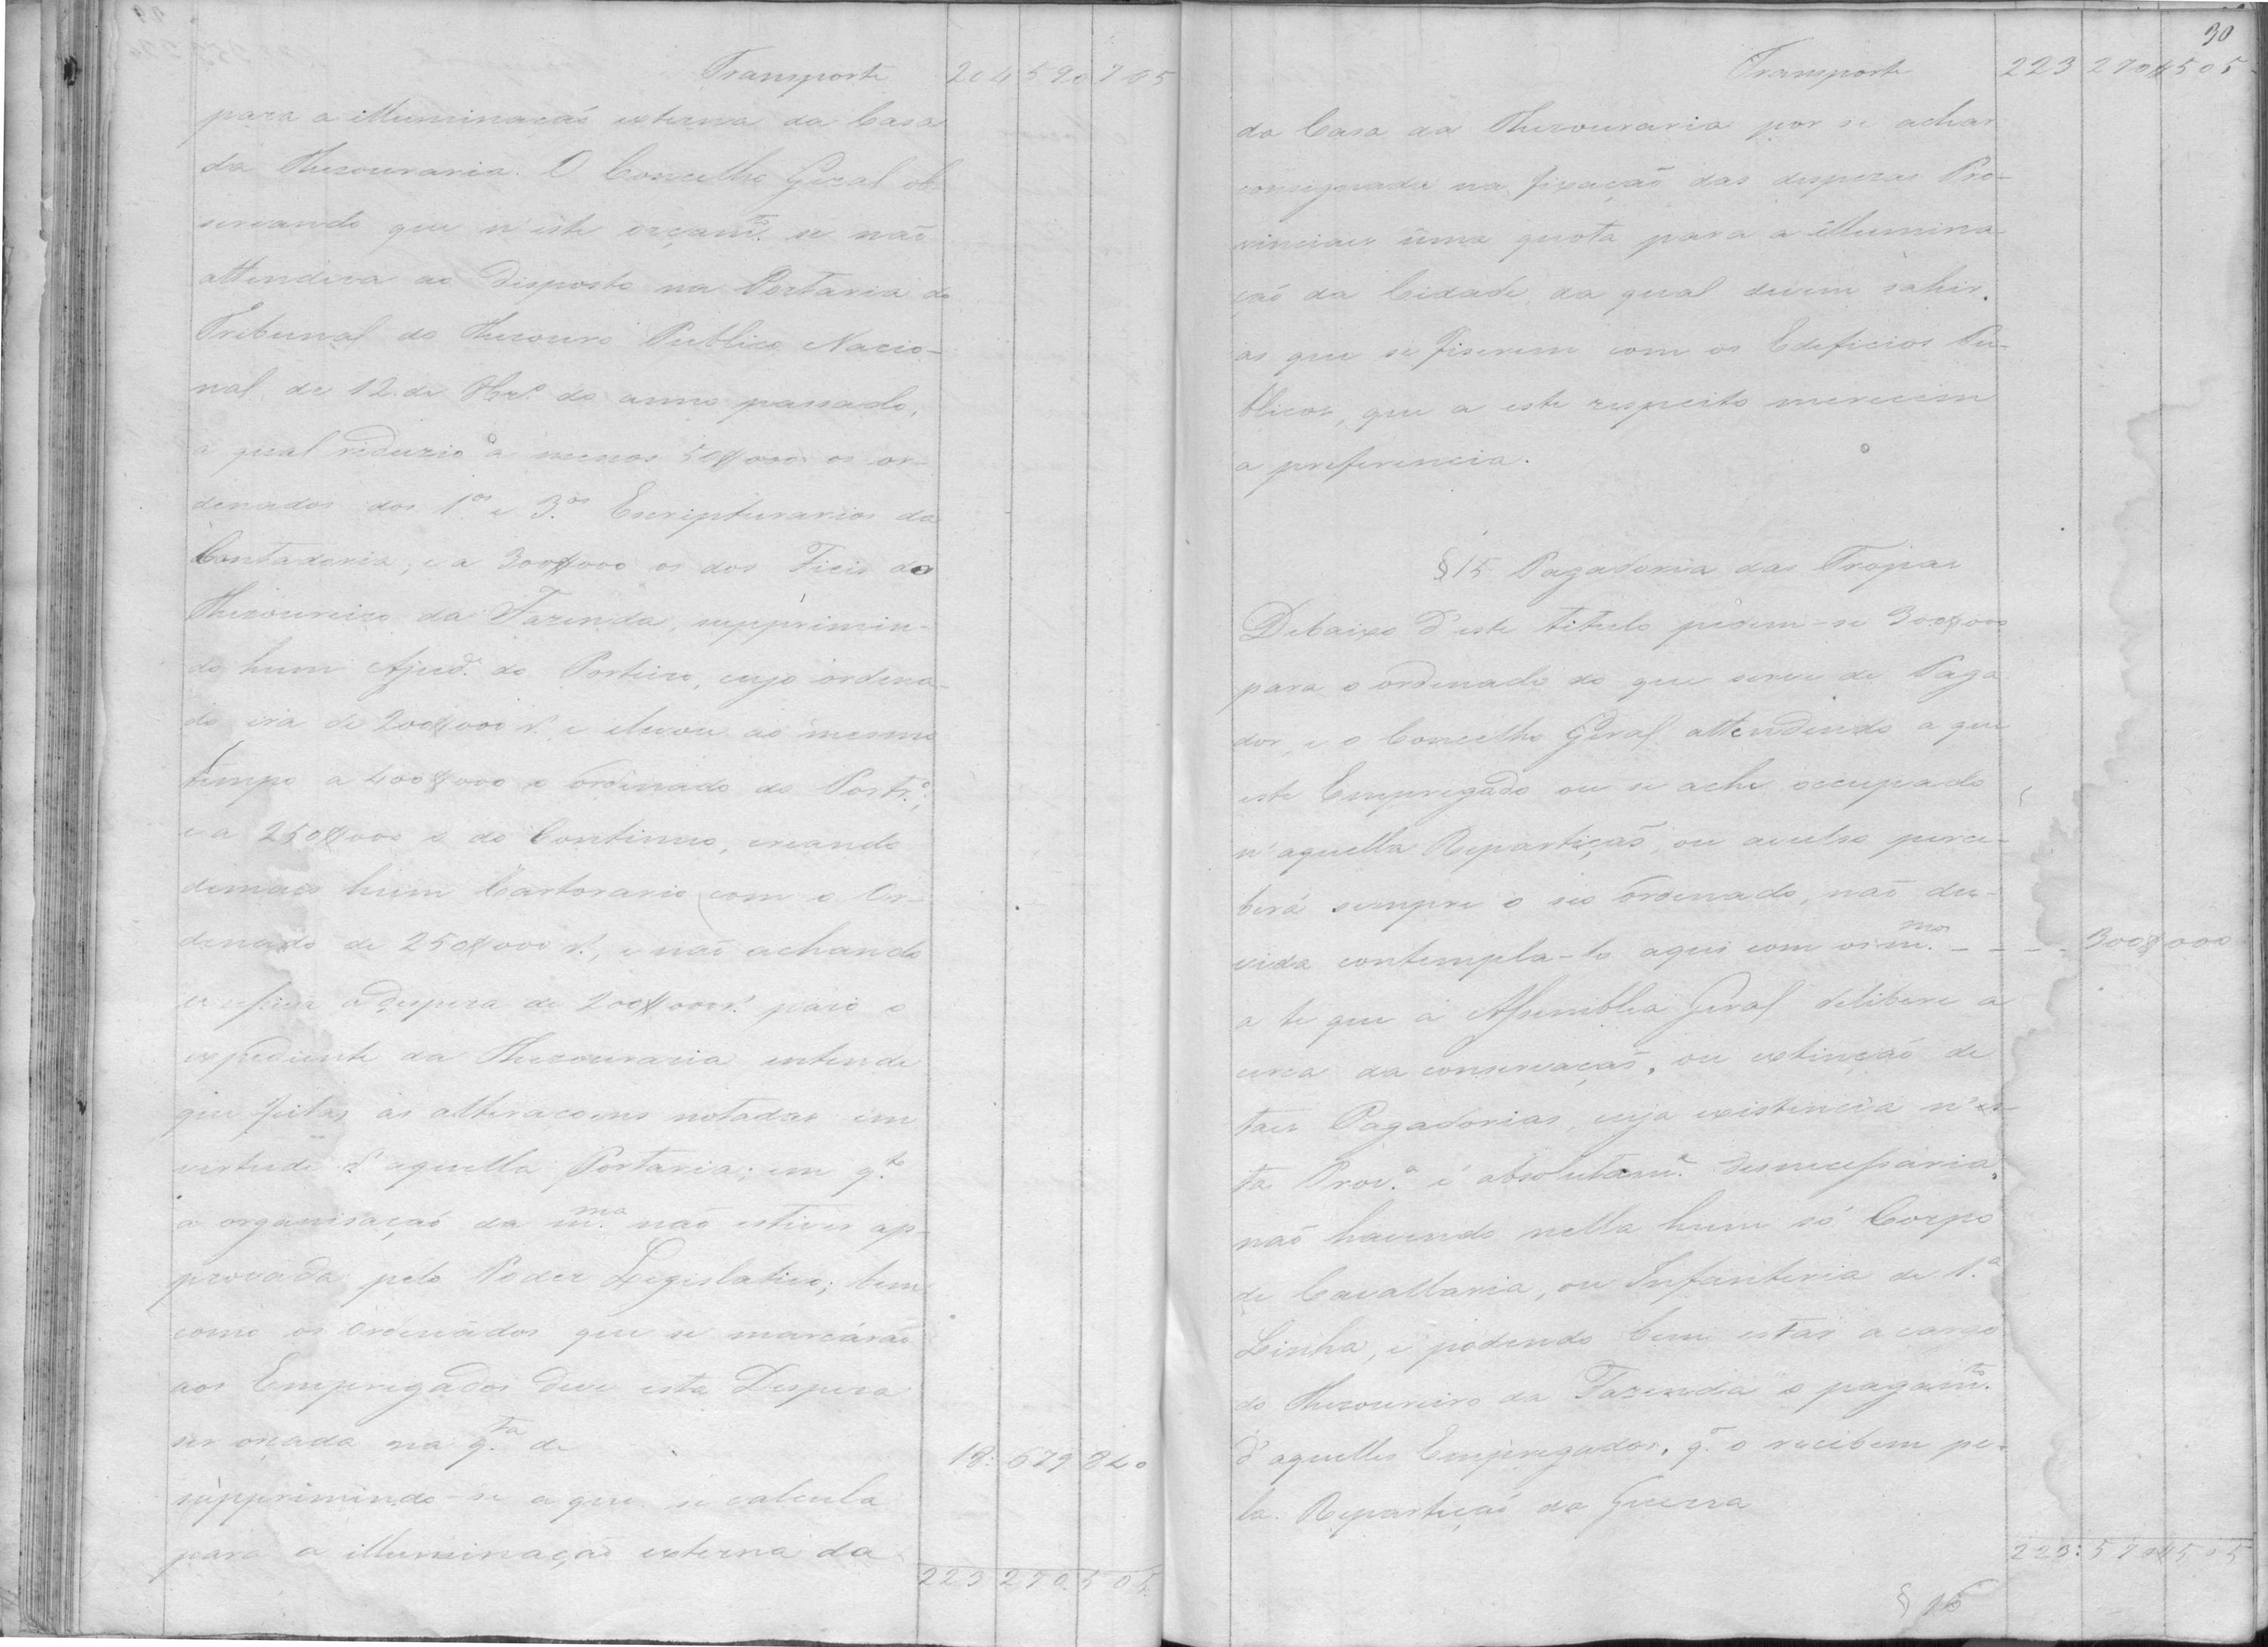 Transporte 204 590 765
para a illuminaçaõ externa da Casa
da Thesouraria. O Concelho Geral ob-
servando que n'este orçamto. se naõ
attendera ao disposto na Portaria do
Tribunal do Thesouro Publico Nacio-
nal de 12 de do anno passado,
a qual reduzio a menos 50$000 os or-
denados dos 1os e 3.os Escripturarios da
Contadoria, e a 300$000 os dos Fieis do
Thesoureiro da Fazenda, supprimin-
do hum Ajud.e do Porteiro, cujo ordena-
do era de 200$000 r.s e elevou ao mesmo
tempo a 400$000 o ordenado do Portr.o,
e a 250$000 o do Continuo, creando
demais hum Cartorario com o Or-
denado de 250$000 r.s, e naõ achando
excessiva a despeza de 200$000 r.s para o
expediente da Thesouraria entende
que feitas as alteracoens notadas em
virtude d'aquella Portaria; em q.to
a organisaçaõ da m.ma naõ estiver ap-
provada pelo Poder Legislativo; bem
como os ordenados que se marcáraõ
aos Empregados deve esta Despeza
ser orçada na q.ta de 18: 679 840
supprimindo-se a que se calcula
para a illuminaçaõ externa da
223 270 505
30
Transporte 223 270$505
da Casa da Thesouraria por se achar
consignada na fixaçaõ das despezas Pro-
vinciaes uma quota para a illumina-
çaõ da Cidade, da qual devem sahir
as que se fiserem com os Edeficios Pu-
blicos, que a este respeito merecem
a preferencia.
§ 15 Pagadoria das Tropas
Debaixo d'este titulo pedem-se 300$000
para o ordenado do que serve de Paga-
dor, e o Concelho Geral attendendo a que
este Empregado ou se ache occupado
n'aquella Repartiçaõ, ou avulso perce-
berá sempre o seo ordenado, naõ du-
vida contempla-lo aqui com os m.mos - - - 300$000
a te que a Assemblea Geral delibere a
cerca da conservaçaõ, ou extinçaõ de
taes Pagadorias, cuja existencia n'es-
ta Prov.a é absolutam.e desnecessaria,
naõ havendo nella hum só Corpo
de Cavallaria, ou Infanteria de 1.a
Linha, e podendo bem estar a cargo
do Thesoureiro da Fazenda o pagam.to
d'aquelles Empregados, q.e o recebem pe-
la Repartiçaõ da Guerra
223: 570$505
§ 16